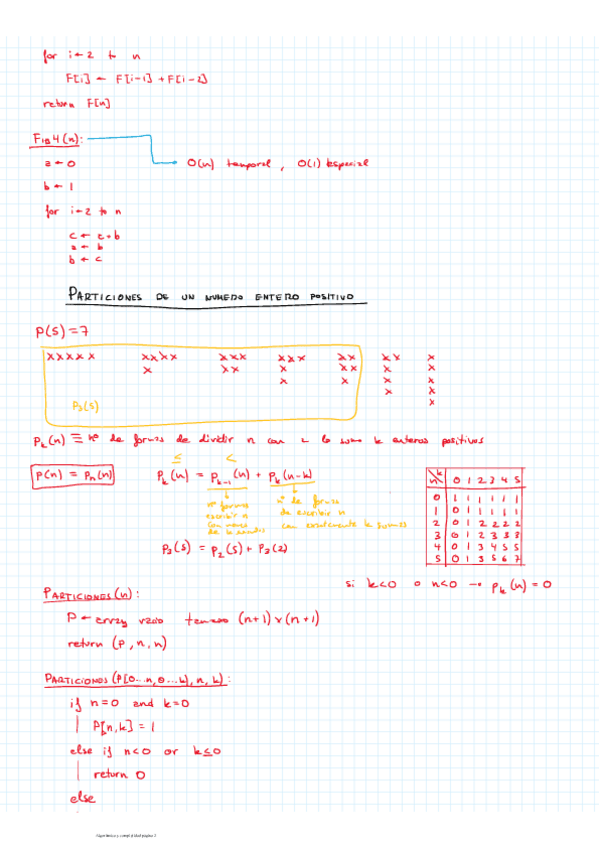 for i ← 2 to n
F[i] ← F[i-1] + F[i-2]
return F[n]
FIB4(n):
O(n) temporal, O(1) espacial
a ← 0
b ← 1
for i ← 2 to n
c ← a+b
a ← b
b ← c
PARTICIONES DE UN NUMERO ENTERO POSITIVO
P(5) = 7
x x x x x x x x x x x x x x x x x x x x x
x x x x x x x x
x x x x
x x
x
P3(5)
Pk(n) ≡ nº de formas de dividir n con a lo sumo k enteros positivos
≤ <
P(n) = Pn(n)
Pk(n) = Pk-1(n) + Pk(n-k)
nº formas
escribir n
con menos
de k sumandos
nº de formas
de escribir n
con exactamente k sumas
P3(5) = P2(5) + P3(2)
n\k 0 1 2 3 4 5
0 1 1 1 1 1 1
1 0 1 1 1 1 1
2 0 1 2 2 2 2
3 0 1 2 3 3 3
4 0 1 3 4 5 5
5 0 1 3 5 6 7
si k<0 o n<0 → Pk(n) = 0
PARTICIONES(n):
P ← array vacío tamaño (n+1)×(n+1)
return (P, n, n)
PARTICIONES(P[0...n, 0...k], n, k):
if n=0 and k=0
P[n,k] = 1
else if n<0 or k≤0
return 0
else